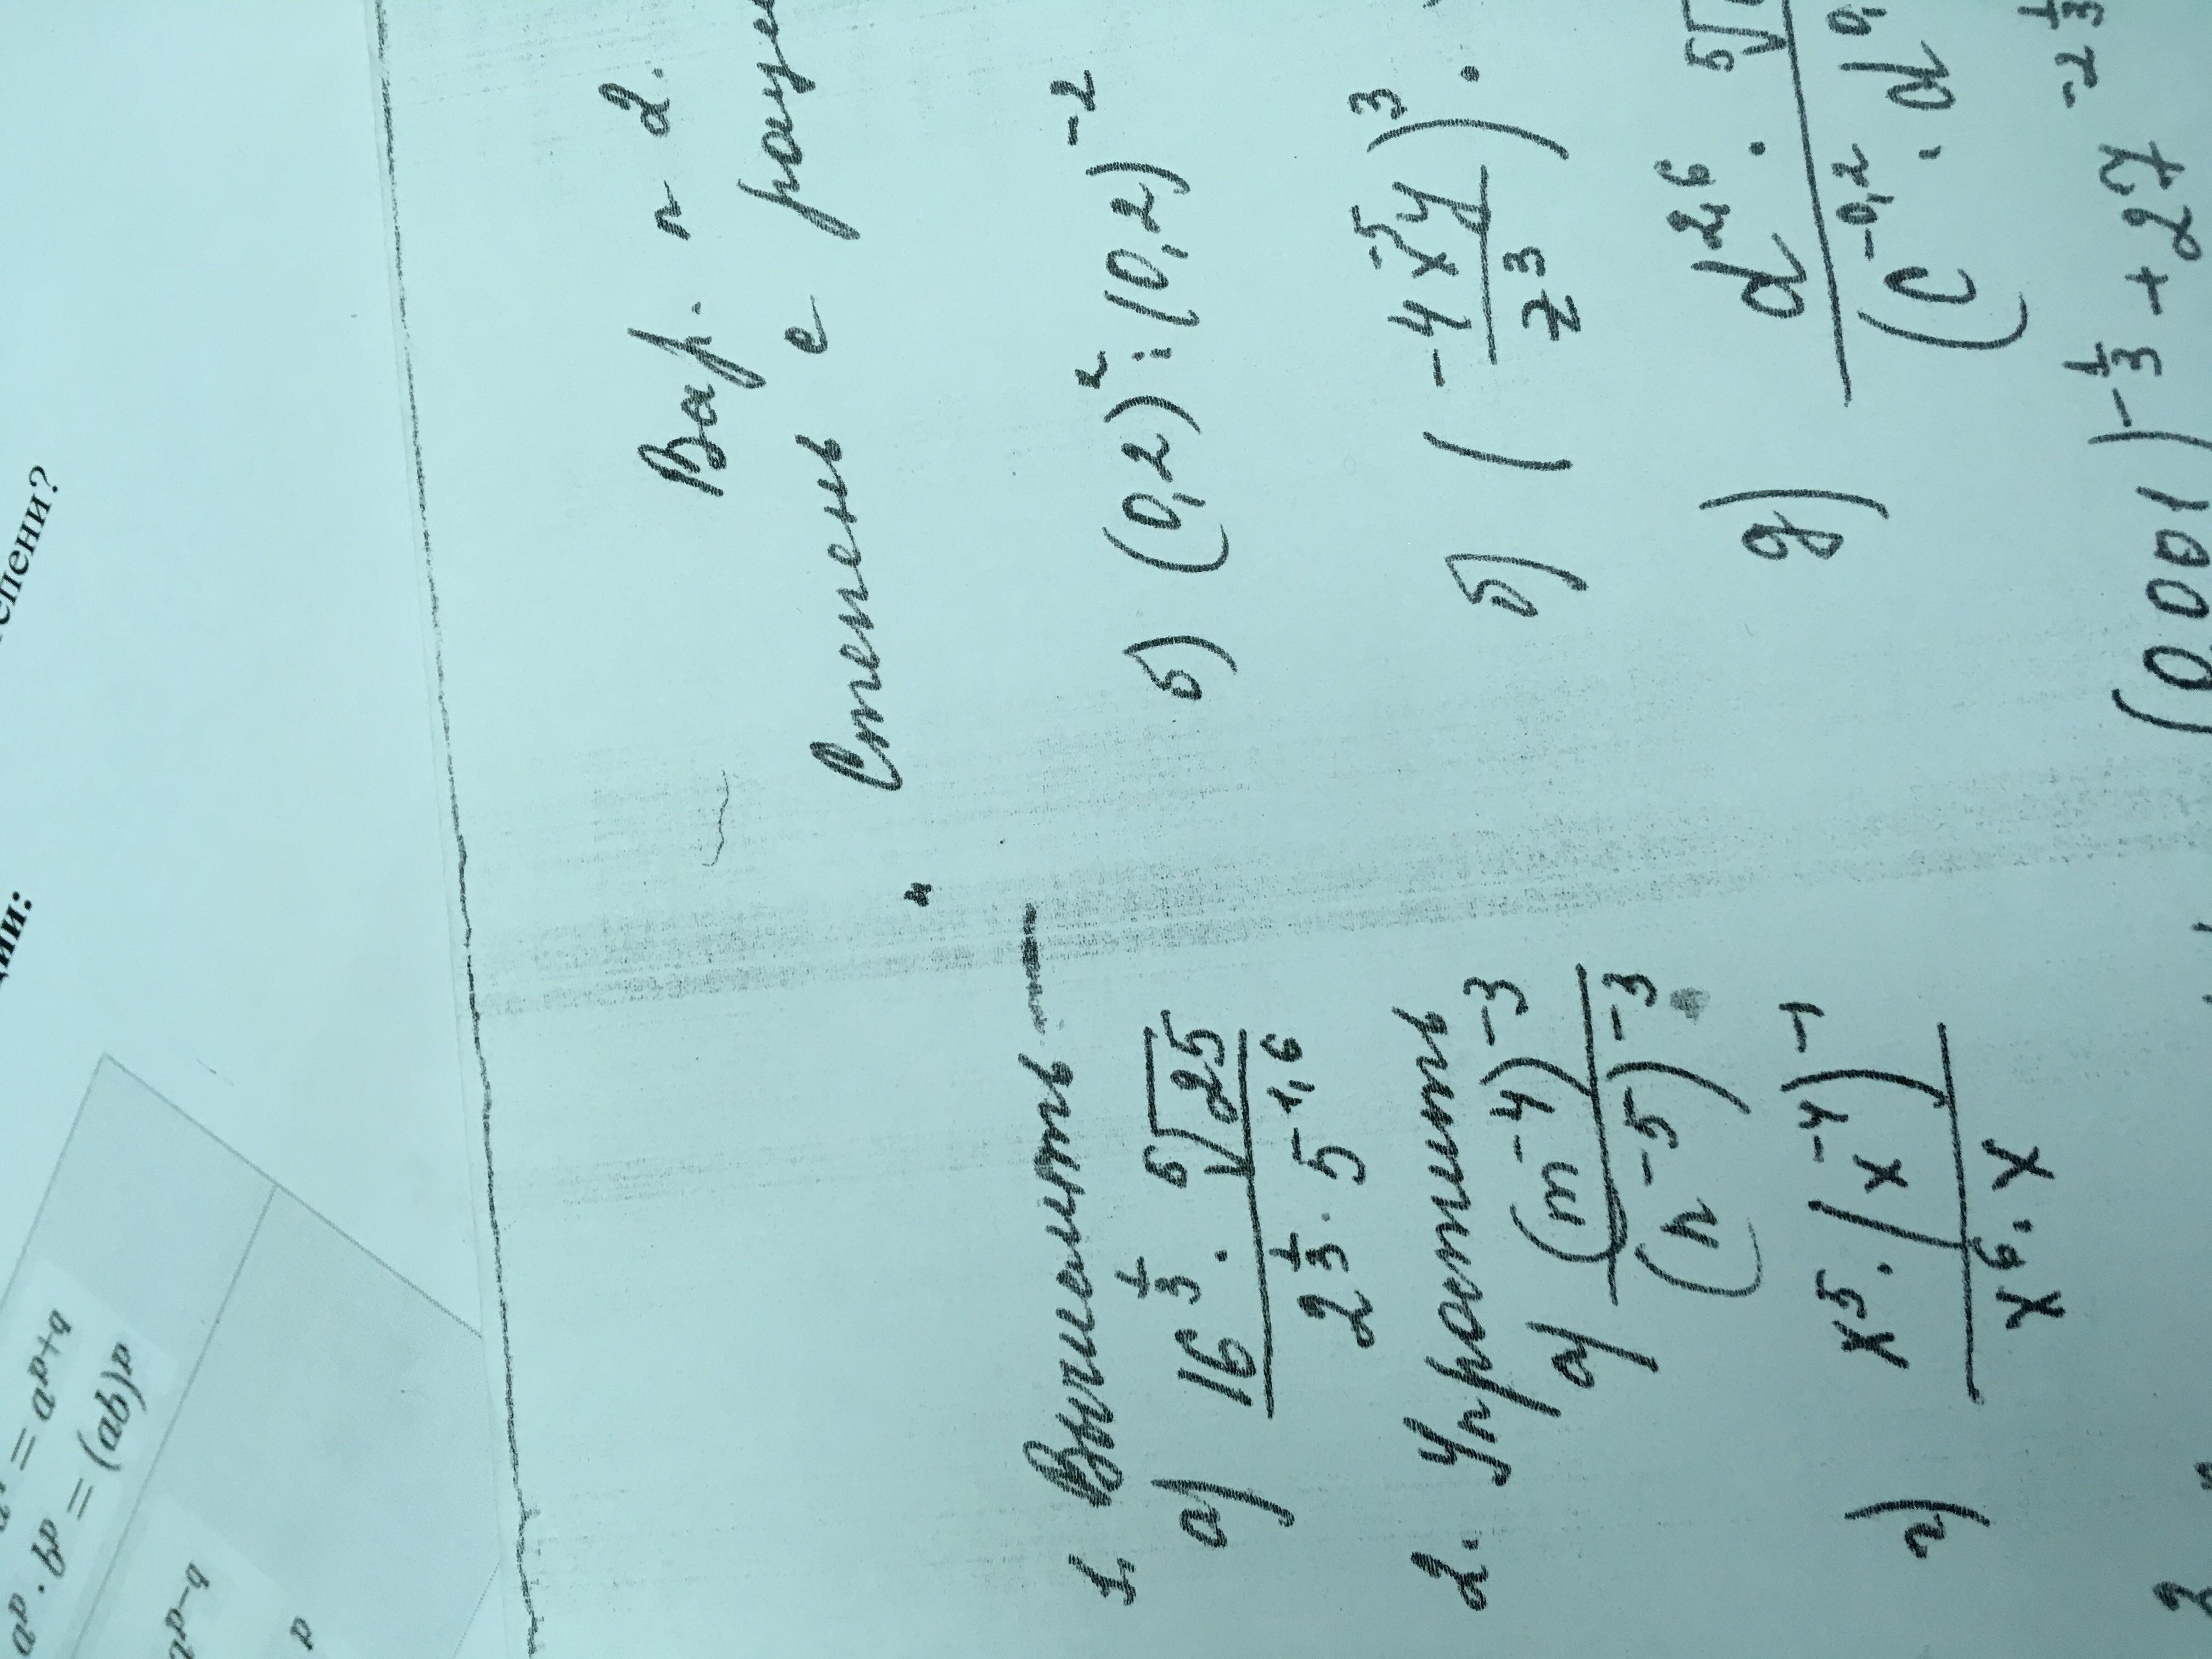 ции:
епени?
= a^{p+q}
a^p · b^p = (ab)^p
a^{p-q}
p
Вар. n 2.
Степень с раци
1. Вычислить
а) \frac{16^{\frac{1}{3}} · \sqrt[5]{25}}{2^{\frac{1}{3}} · 5^{-1,6}} б) (0,2)^2 : (0,2)^{-2}
2. Упростить
а) \frac{(m^{-4})^{-3}}{(n^{-5})^{-3}} б) (\frac{-4x^{-5}y}{z^3})^3 ·
г) \frac{x^5 · (x^{-4})^{-1}}{x^6 · x} д) \frac{d^{2,6} · \sqrt[5]{}}{(c^{-0,2} · d^{0,}}
(0,001)^{-\frac{1}{3}} + 27^{-2\frac{1}{3}}